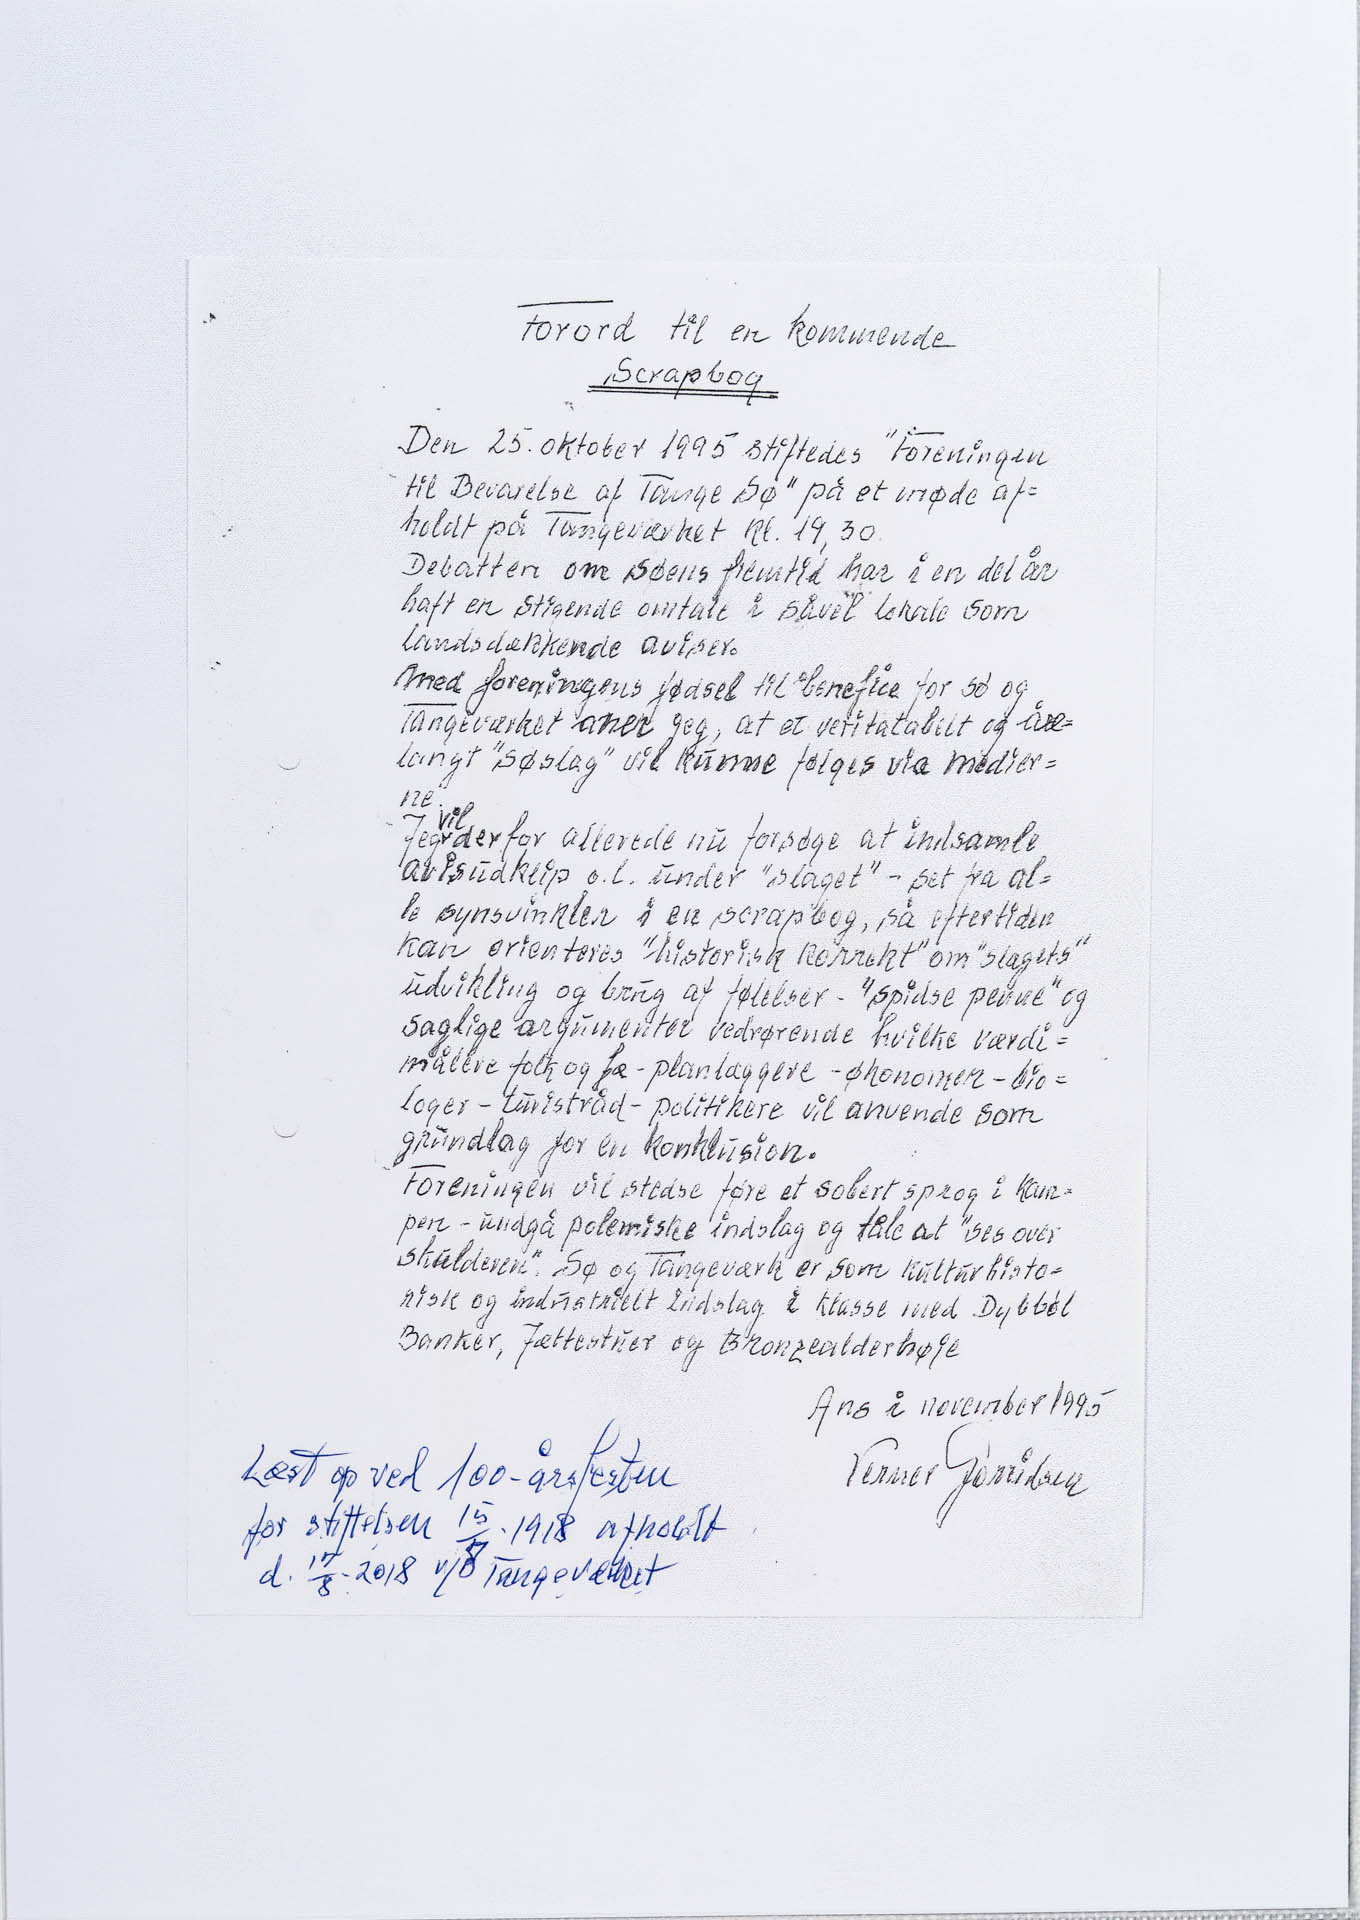 Forord til en kommende
Scrapbog
Den 25. oktober 1995 stiftedes "Foreningen
til Bevarelse af Tange Sø" på et møde af=
holdt på Tangeværket kl. 19,30.
Debatten om søens fremtid har i en del år
haft en stigende omtale i såvel lokale som
landsdækkende aviser.
Med foreningens fødsel til benefice for sø og
Tangeværket aner jeg, at et veritatabelt og åre=
langt "søslag" vil kunne følges via medier=
ne.
vil
Jeg derfor allerede nu forsøge at indsamle
avisudklip o.l. under "slaget" - set fra al=
le synsvinkler i en scrapbog, så eftertiden
kan orienteres "historisk korrekt" om "slagets"
udvikling og brug af følelser - "spidse penne" og
saglige argumenter vedrørende hvilke værdi=
målere folk og fæ - planlæggere - økonomer - bio=
loger - turistråd - politikere vil anvende som
grundlag for en konklusion.
Foreningen vil stedse føre et sobert sprog i kam=
pen - undgå polemiske indslag og tåle at "ses over
skulderen". Sø og Tangeværk er som kulturhisto=
risk og industrielt indslag i klasse med Dybbøl
Banker, Jættestuer og Bronzealderhøje
Ans i november 1995
Verner
Læst op ved 100-årsfesten
for stiftelsen 15/ -1918 afholdt
d. /8-2018 Tangeværket